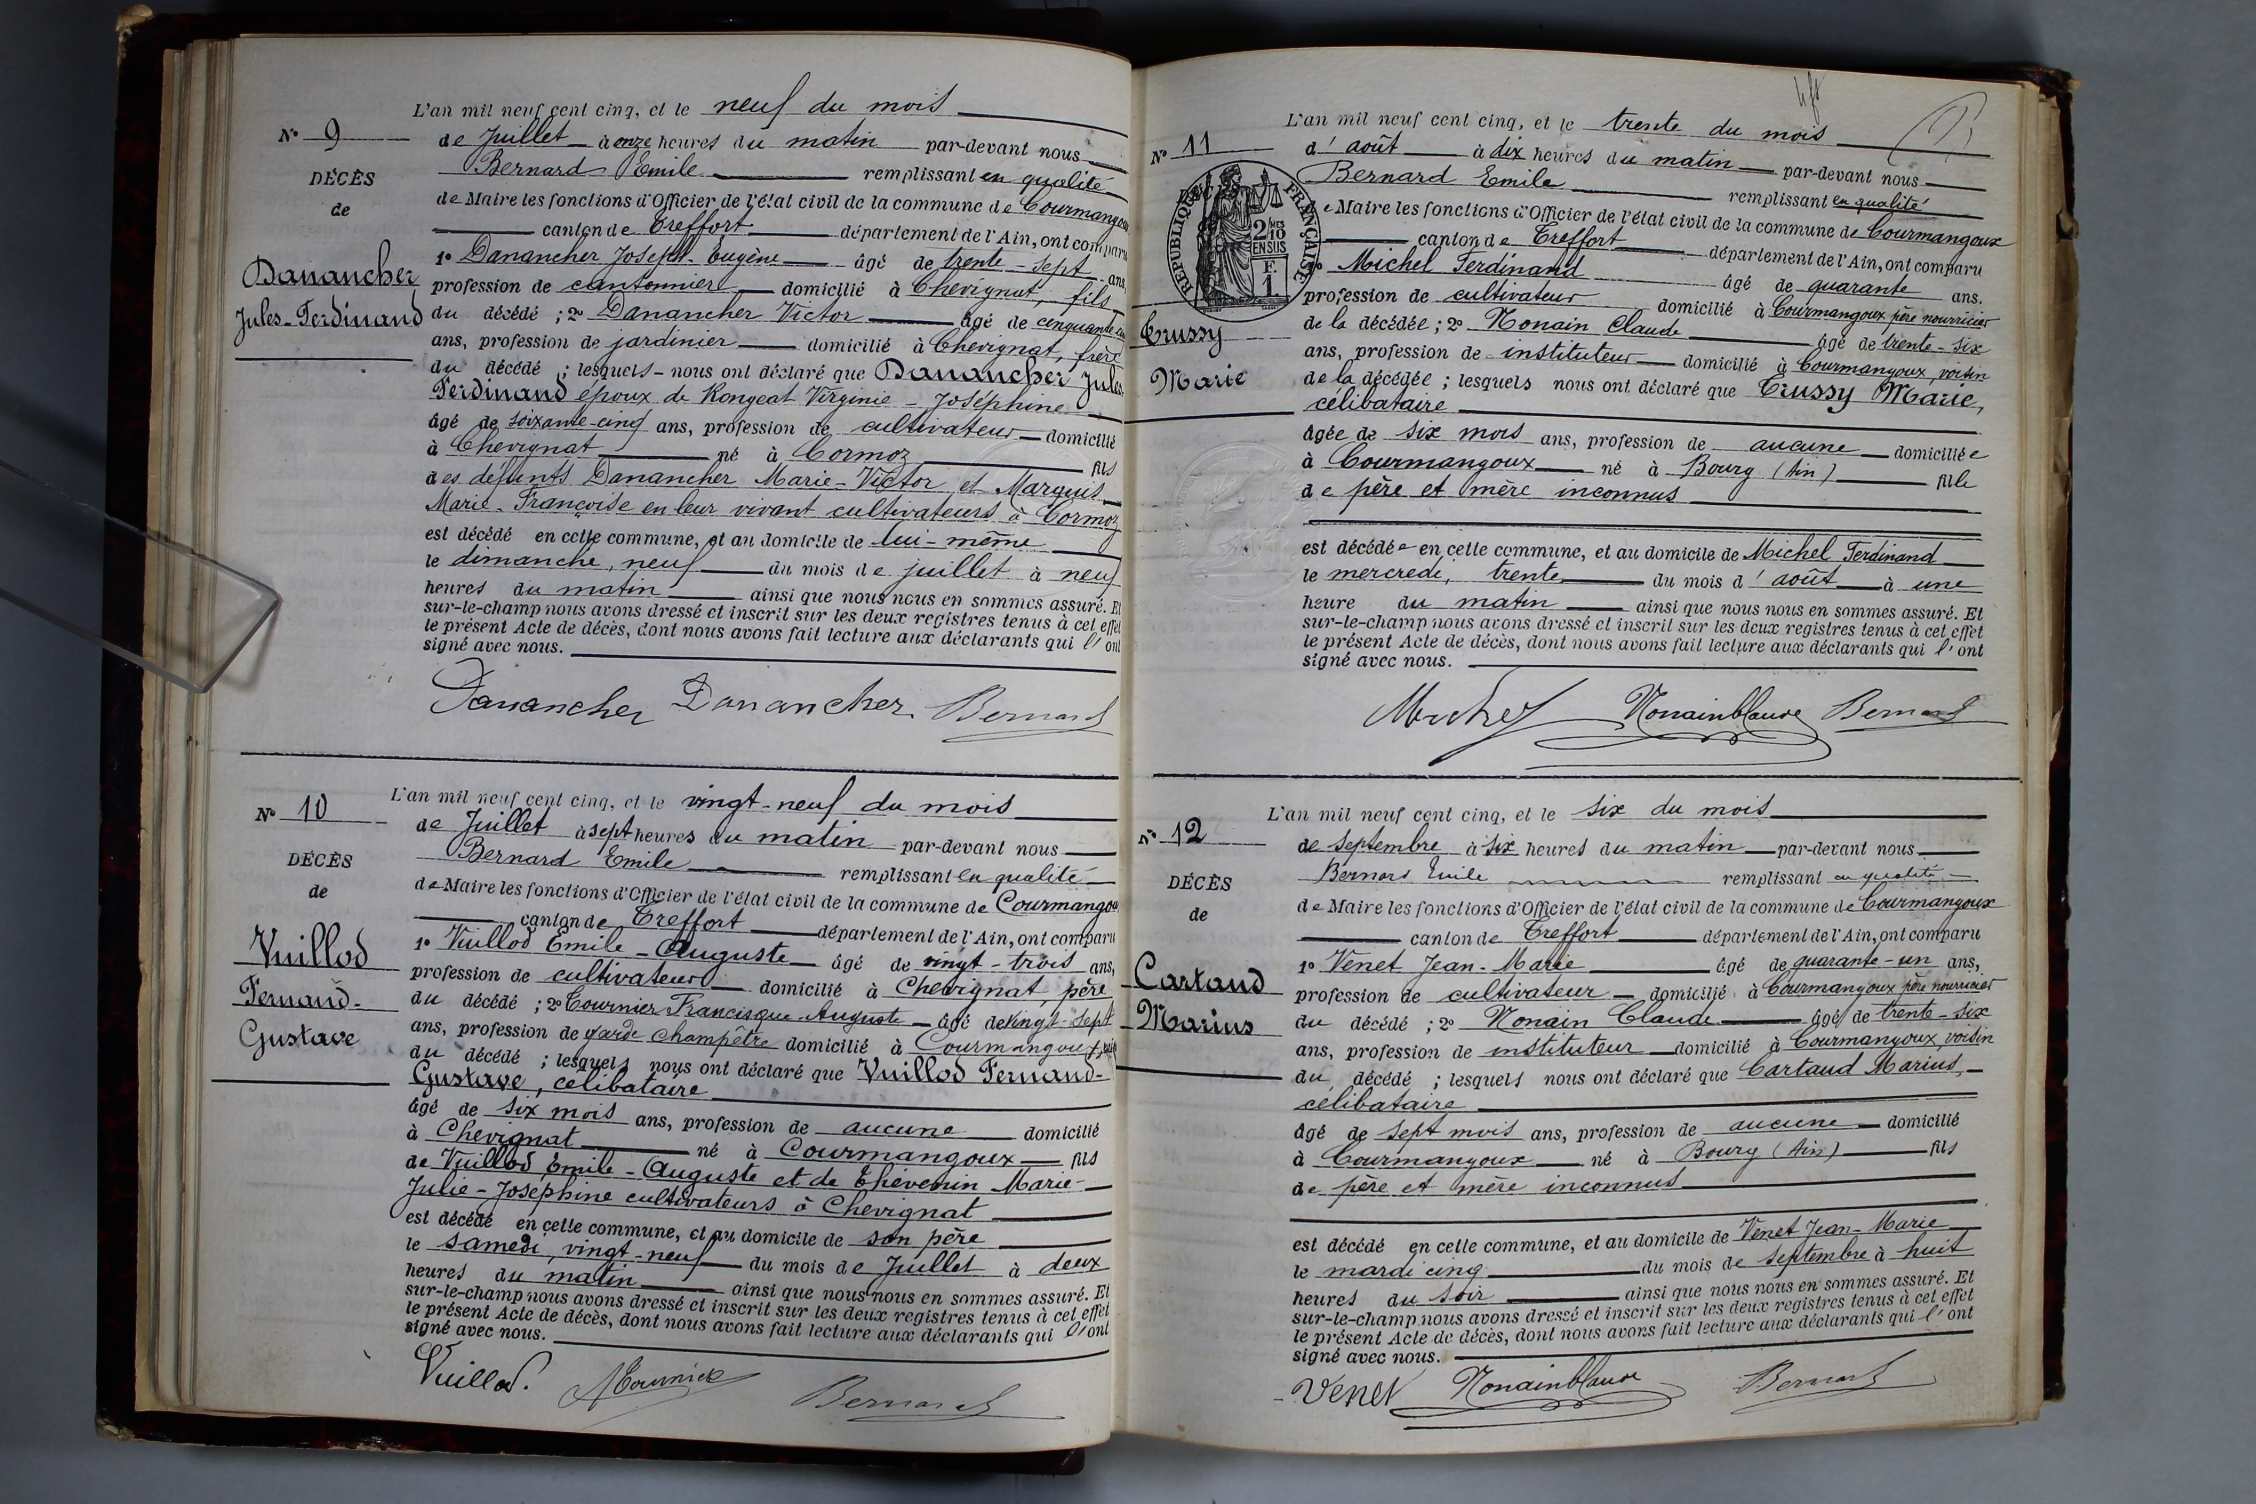 L'an mil neuf cent cinq, et le neuf du mois
N° 9
de Juillet à onze heures du matin par-devant nous
Bernard Emile remplissant en qualité
DÉCÈS
de Maire les fonctions d'Officier de l'état civil de la commune de Courmangoux
de
canton de Treffort département de l'Ain, ont comparu
Danancher
1° Danancher Joseph-Eugène âgé de trente-sept ans,
profession de cantonnier domicilié à Chevignat, fils
Jules-Ferdinand
du décédé ; 2° Danancher Victor âgé de cinquante
ans, profession de jardinier domicilié à Chevignat, frère
du décédé ; lesquels nous ont déclaré que Danancher Jules
Ferdinand époux de Rongeat Virginie-Joséphine
âgé de soixante-cinq ans, profession de cultivateur domicilié
à Chevignat né à Cormoz fils
des défunts Danancher Marie-Victor et Marquis
Marie-Françoise en leur vivant cultivateurs à Cormoz
est décédé en cette commune, et au domicile de lui-même
le dimanche, neuf du mois de juillet à neuf
heures du matin ainsi que nous nous en sommes assuré. Et
sur-le-champ nous avons dressé et inscrit sur les deux registres tenus à cet effet
le présent Acte de décès, dont nous avons fait lecture aux déclarants qui l'ont
signé avec nous.
Danancher Danancher Bernard
L'an mil neuf cent cinq, et le vingt-neuf du mois
N° 10
de Juillet à sept heures du matin par-devant nous
Bernard Emile remplissant en qualité
DÉCÈS
de Maire les fonctions d'Officier de l'état civil de la commune de Courmangoux
de
canton de Treffort département de l'Ain, ont comparu
Vuillod
1° Vuillod Emile-Auguste âgé de vingt-trois ans,
profession de cultivateur domicilié à Chevignat, père
Fernand-
du décédé ; 2° Tournier Francisque-Auguste âgé de vingt-sept
ans, profession de garde champêtre domicilié à Courmangoux,
Gustave
du décédé ; lesquels nous ont déclaré que Vuillod Fernand-
Gustave, célibataire
âgé de six mois ans, profession de aucune domicilié
à Chevignat né à Courmangoux fils
de Vuillod Emile-Auguste et de Thévenin Marie-
Julie-Joséphine cultivateurs à Chevignat
est décédé en cette commune, et au domicile de son père
le samedi, vingt-neuf du mois de Juillet à deux
heures du matin ainsi que nous nous en sommes assuré. Et
sur-le-champ nous avons dressé et inscrit sur les deux registres tenus à cet effet
le présent Acte de décès, dont nous avons fait lecture aux déclarants qui l'ont
signé avec nous.
Vuillod. Tournier Bernard
L'an mil neuf cent cinq, et le trente du mois
N° 11
d'août à dix heures du matin par-devant nous
Bernard Emile remplissant en qualité
RÉPUBLIQUE FRANÇAISE
2/10 EN SUS
F. 1
e Maire les fonctions d'Officier de l'état civil de la commune de Courmangoux
canton de Treffort département de l'Ain, ont comparu
1° Michel Ferdinand âgé de quarante ans.
profession de cultivateur domicilié à Courmangoux père nourricier
Trussy
de la décédée ; 2° Nonain Claude âgé de trente-six
ans, profession de instituteur domicilié à Courmangoux, voisin
Marie
de la décédée ; lesquels nous ont déclaré que Trussy Marie,
célibataire
âgée de six mois ans, profession de aucune domiciliée
à Courmangoux né à Bourg (Ain) fille
de père et mère inconnus
est décédée en cette commune, et au domicile de Michel Ferdinand
le mercredi, trente du mois d'août à une
heure du matin ainsi que nous nous en sommes assuré. Et
sur-le-champ nous avons dressé et inscrit sur les deux registres tenus à cet effet
le présent Acte de décès, dont nous avons fait lecture aux déclarants qui l'ont
signé avec nous.
Michel Nonain Claude Bernard
L'an mil neuf cent cinq, et le six du mois
N° 12
de septembre à six heures du matin par-devant nous
Bernard Emile remplissant en qualité
DÉCÈS
de Maire les fonctions d'Officier de l'état civil de la commune de Courmangoux
de
canton de Treffort département de l'Ain, ont comparu
1° Venet Jean-Marie âgé de quarante-un ans,
Cartaud
profession de cultivateur domicilié à Courmangoux père nourricier
Marius
du décédé ; 2° Nonain Claude âgé de trente-six
ans, profession de instituteur domicilié à Courmangoux, voisin
du décédé ; lesquels nous ont déclaré que Cartaud Marius,
célibataire
âgé de sept mois ans, profession de aucune domicilié
à Courmangoux né à Bourg (Ain) fils
de père et mère inconnus
est décédé en cette commune, et au domicile de Venet Jean-Marie
le mardi cinq du mois de septembre à huit
heures du soir ainsi que nous nous en sommes assuré. Et
sur-le-champ nous avons dressé et inscrit sur les deux registres tenus à cet effet
le présent Acte de décès, dont nous avons fait lecture aux déclarants qui l'ont
signé avec nous.
Venet Nonain Claude Bernard